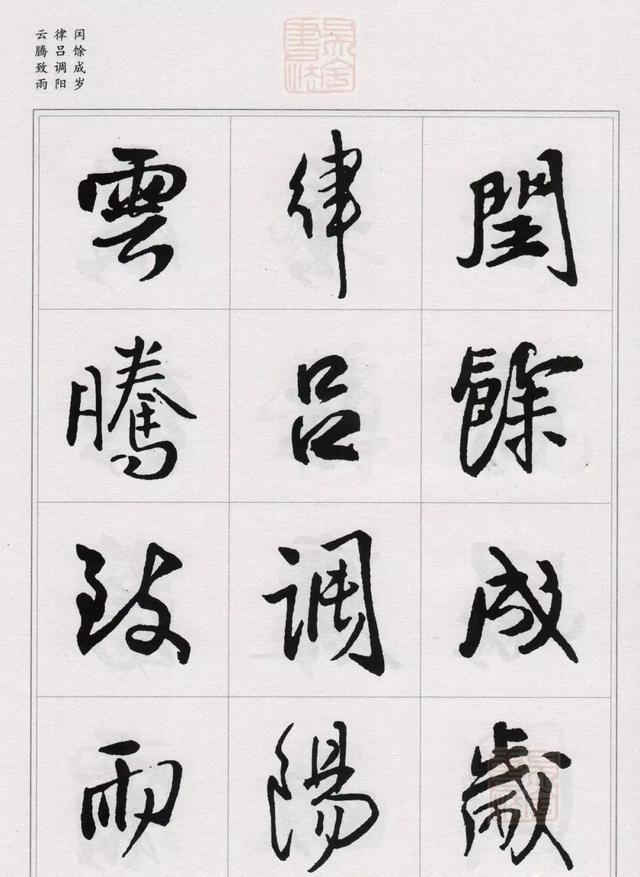 闰馀成岁
律吕调阳
云腾致雨
閏餘成歲
律呂调陽
雲騰致雨